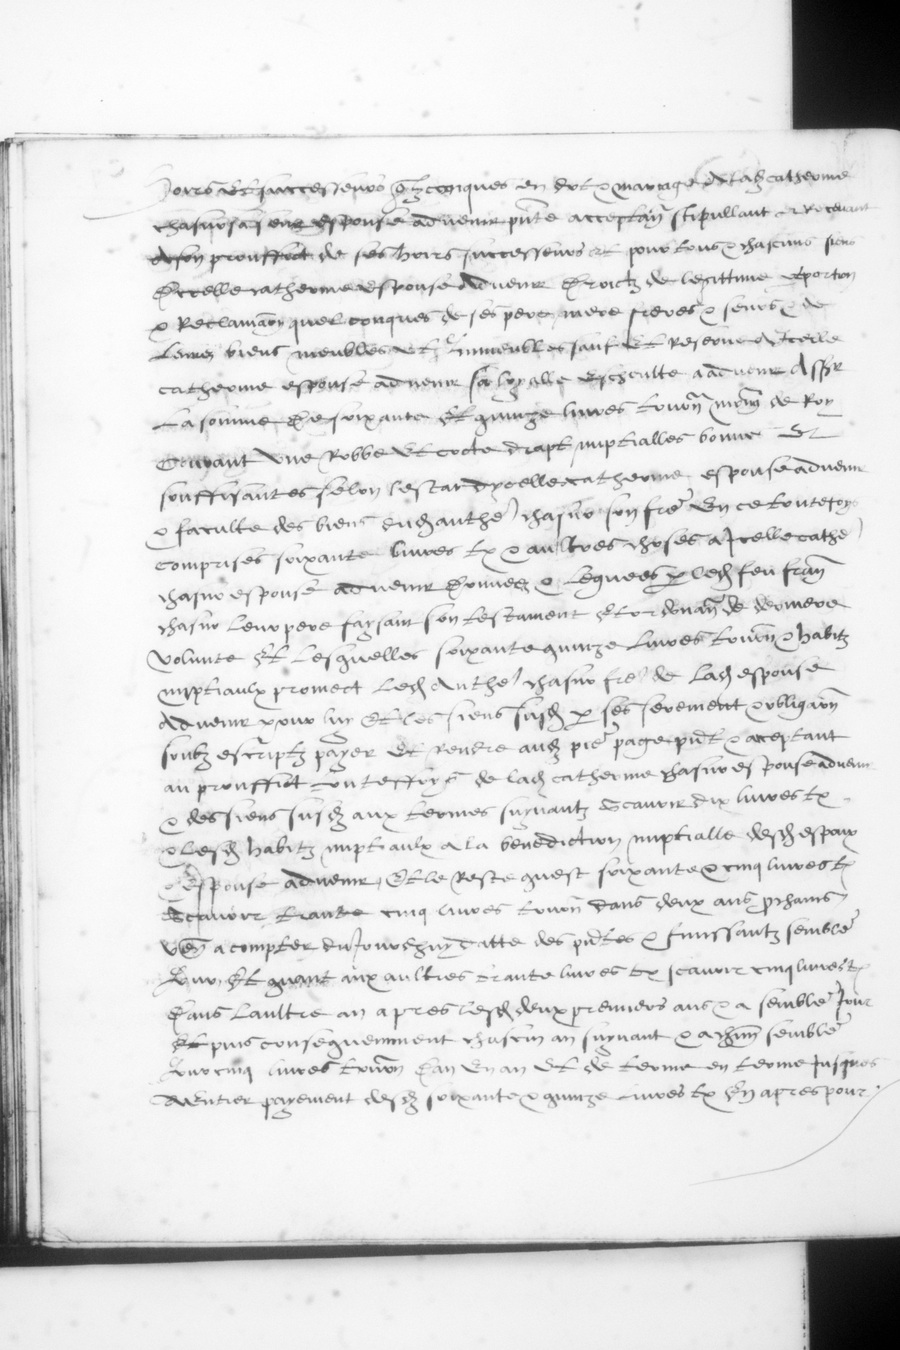 hoirs et successeurs qlzconques en dot & mariage de lad catherine
chasur sa seur espouse advenir pnte acceptan stipullant & recevant
a son prouffict de ses hoirs successeurs et pour tous & chascuns siens
Dicelle catherine espouse advenir droictz de legittime portion
& reclamaon quelconques de ses pere mere freres & seurs & de
leurs biens meubles et immeubles sauf et reserve a icelle
catherine espouse advenir sa loyalle escheutte advenir Assr
La somme de soixante et quinze livres tourn monn de Roy
Courant une Robbe et cotte drapt nuptialles bonne et
souffisantes selon lestat dycelle catherine espouse advenir
& faculte des biens dud anthe chasur son fre En ce toutefoys
comprises soixante livres tz & aultres choses a Icelle cathe
chasur espouse advenir donnez & leguees p led feu fran
chasur leur pere faysant son testament et ordonan de derniere
volunte Et Lesquelles soixante quinze Livres tourn & habitz
nuptiaulx promect Led Anthe chasur fre de Lad espouse
Advenir pour luy et les siens susd p ses serement & obligaon
soubz escriptz payer et rendre aud page pnt & acceptant
au prouffict de lad catherine chasur espouse advenir
& des siens susd aux termes suyvantz Scavoir dix livres tz
& lesd habitz nuptiaulx a la benediction nuptialle desd espoux
& espouse advenir Et le Reste quest soixante & cinq livres tz
Scavoir trante cinq livres tourn dans deux ans prochains
ven a compter du Jourdhuy datte des pntes & finissantz semble
Jour Et quant aux aultres trante livres tz scavoir cinq livres tz
Dans Laultre an apres lesd deux premiers ans & a semble Jour
Et puis consequemment chascun an suyvant & a semble
Jour cinq livres tourn dan en an et de terme en terme Jusques
A entier payement desd soixante & quinze livres tz Et apres pour